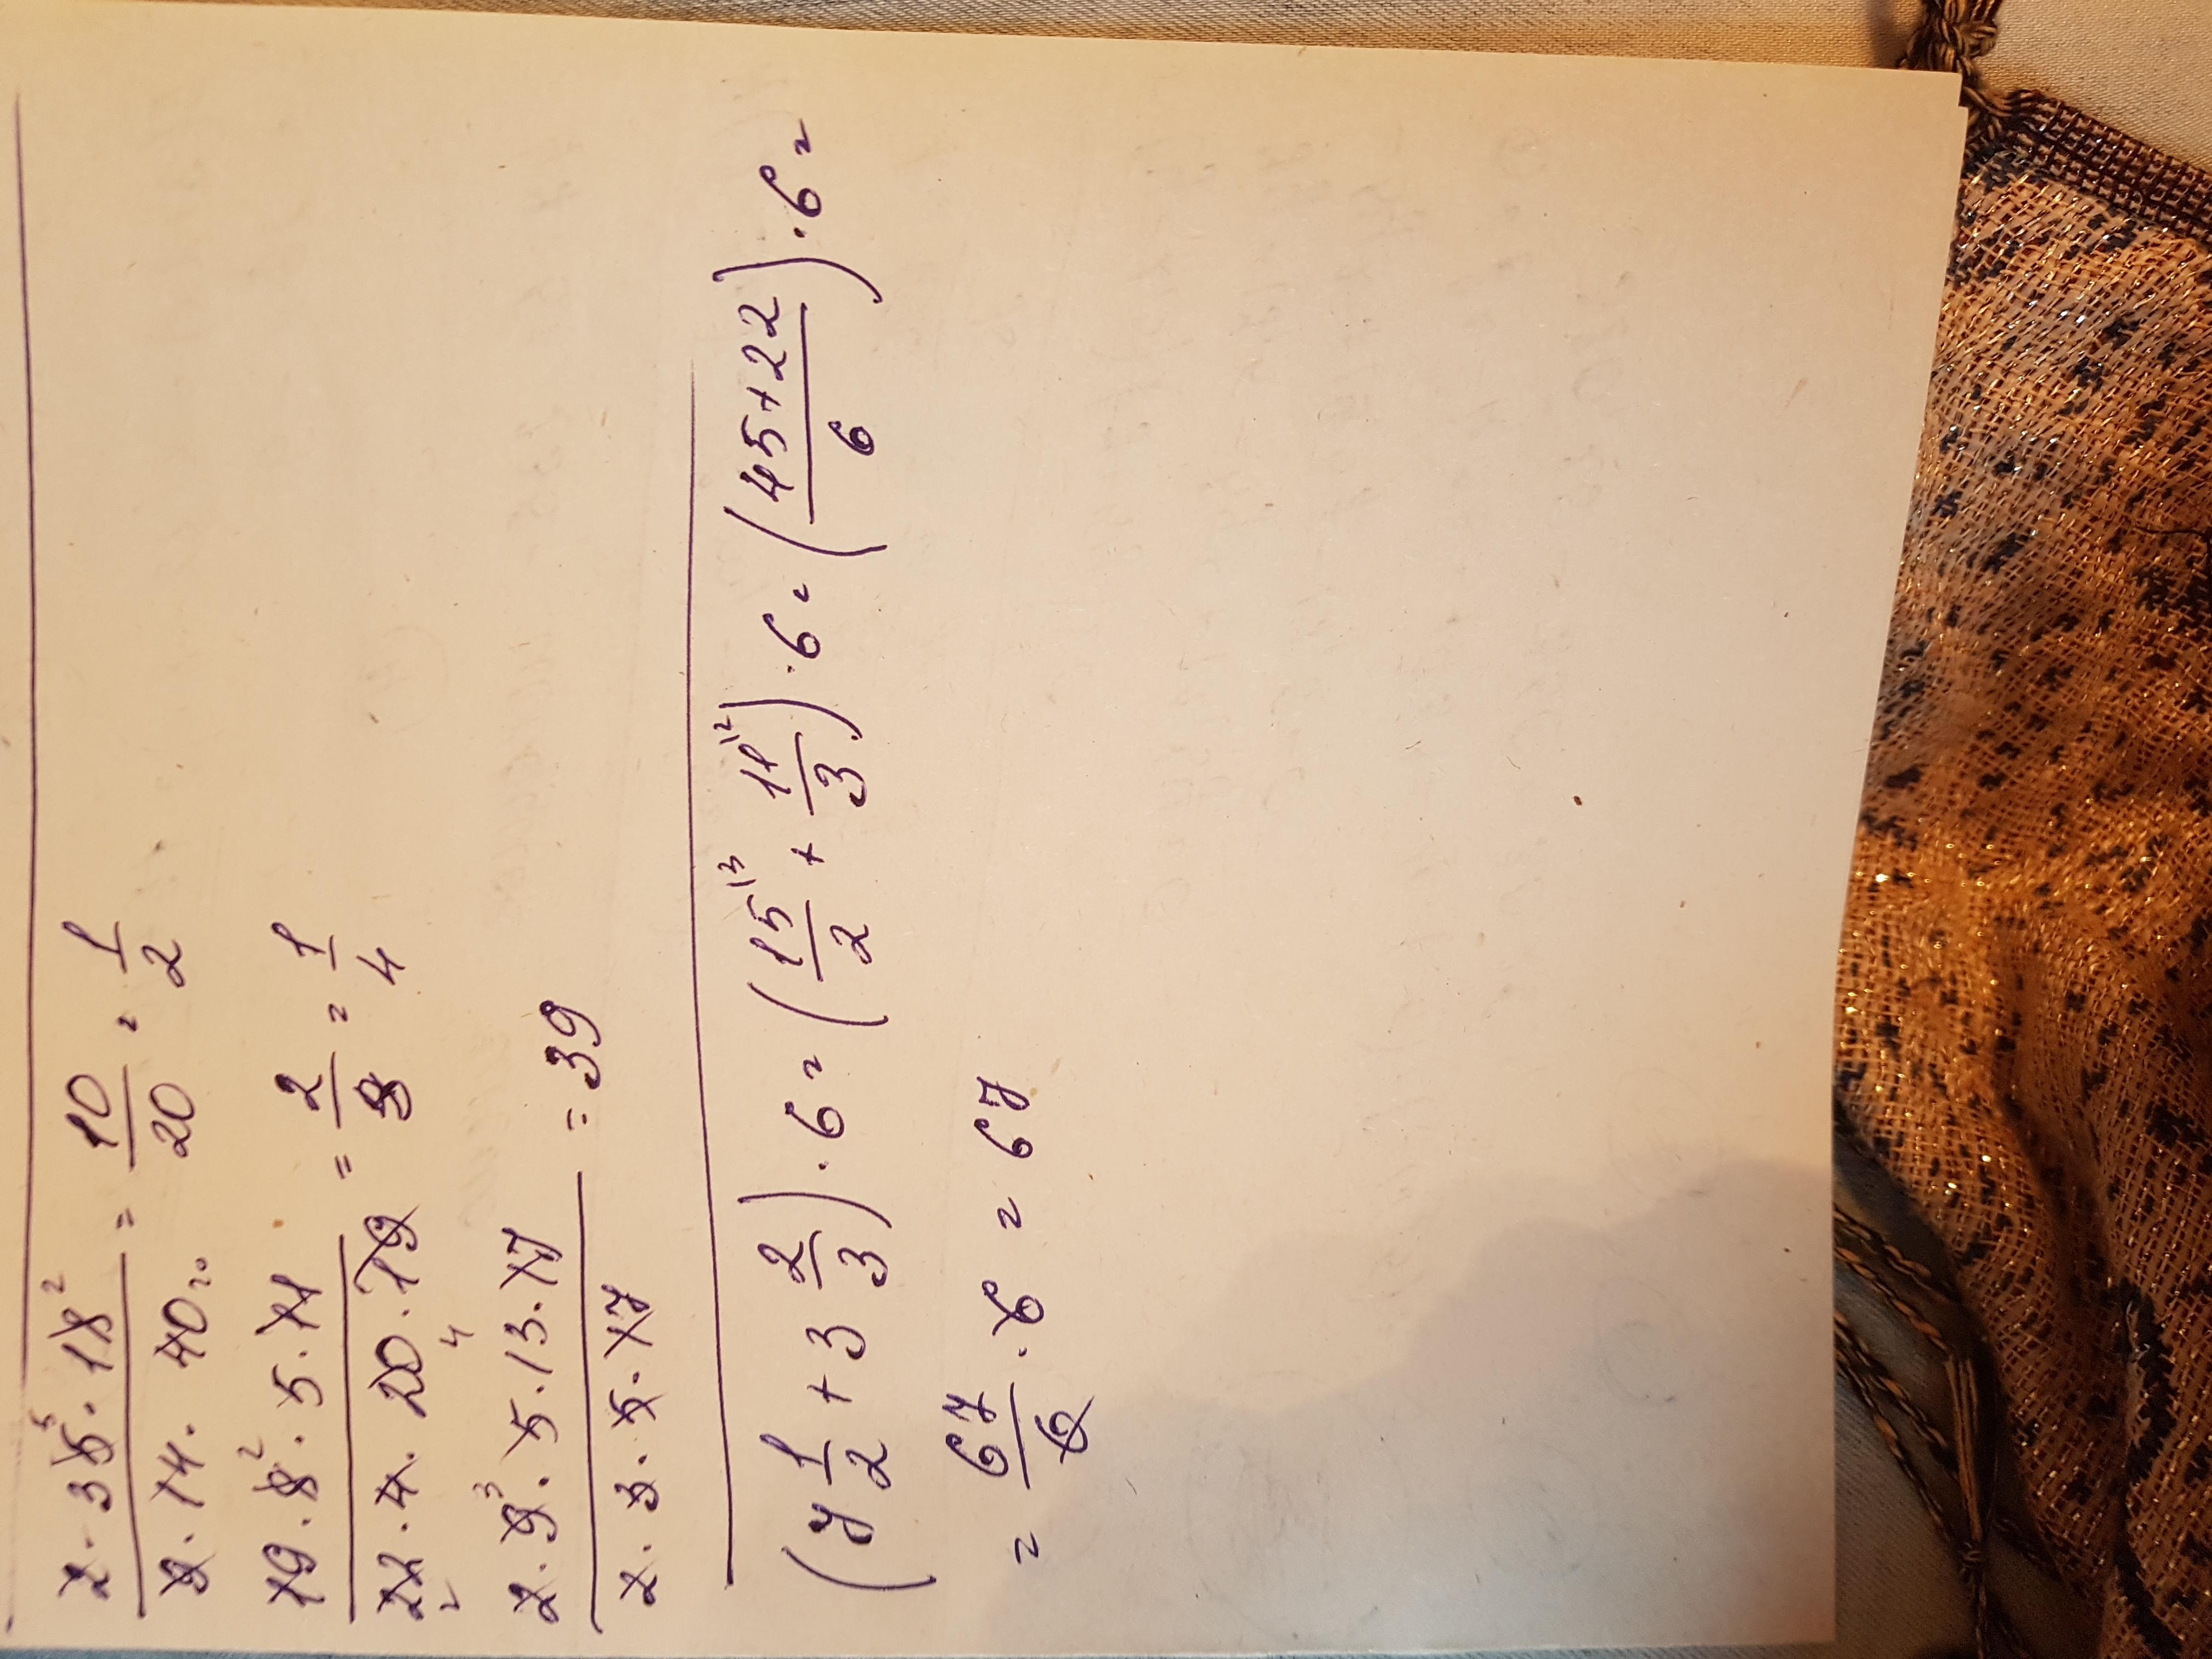 2 · 35⁵ · 18² / 9 · 14 · 40₂₀ = 10/20 = 1/2
19 · 8² · 5 · 11 / 22₂ · 4 · 20₄ · 19 = 2/8 = 1/4
2 · 9³ · 5 · 13 · 17 / 2 · 3 · 5 · 17 = 39
(7 1/2 + 3 2/3) · 6 = (15\³/2 + 11\²/3) · 6 = (45+22/6) · 6 =
= 67/6 · 6 = 67